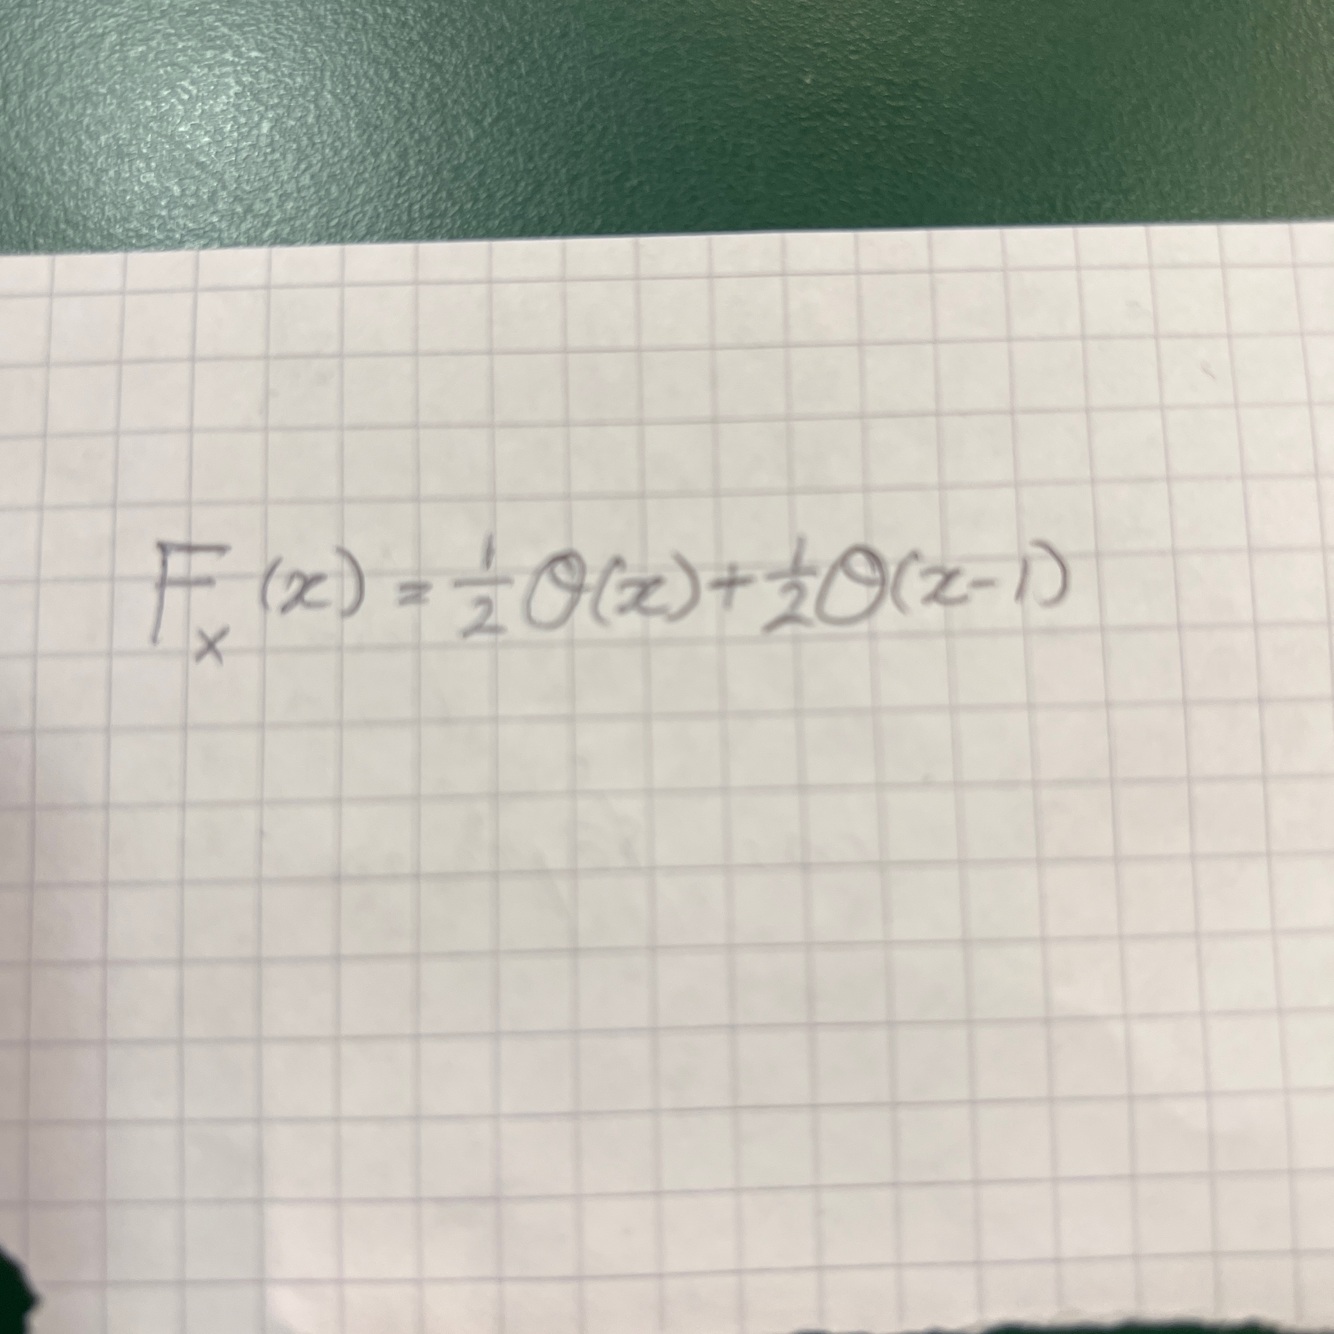 F_X (x) = 1/2 θ(x) + 1/2 θ(x-1)